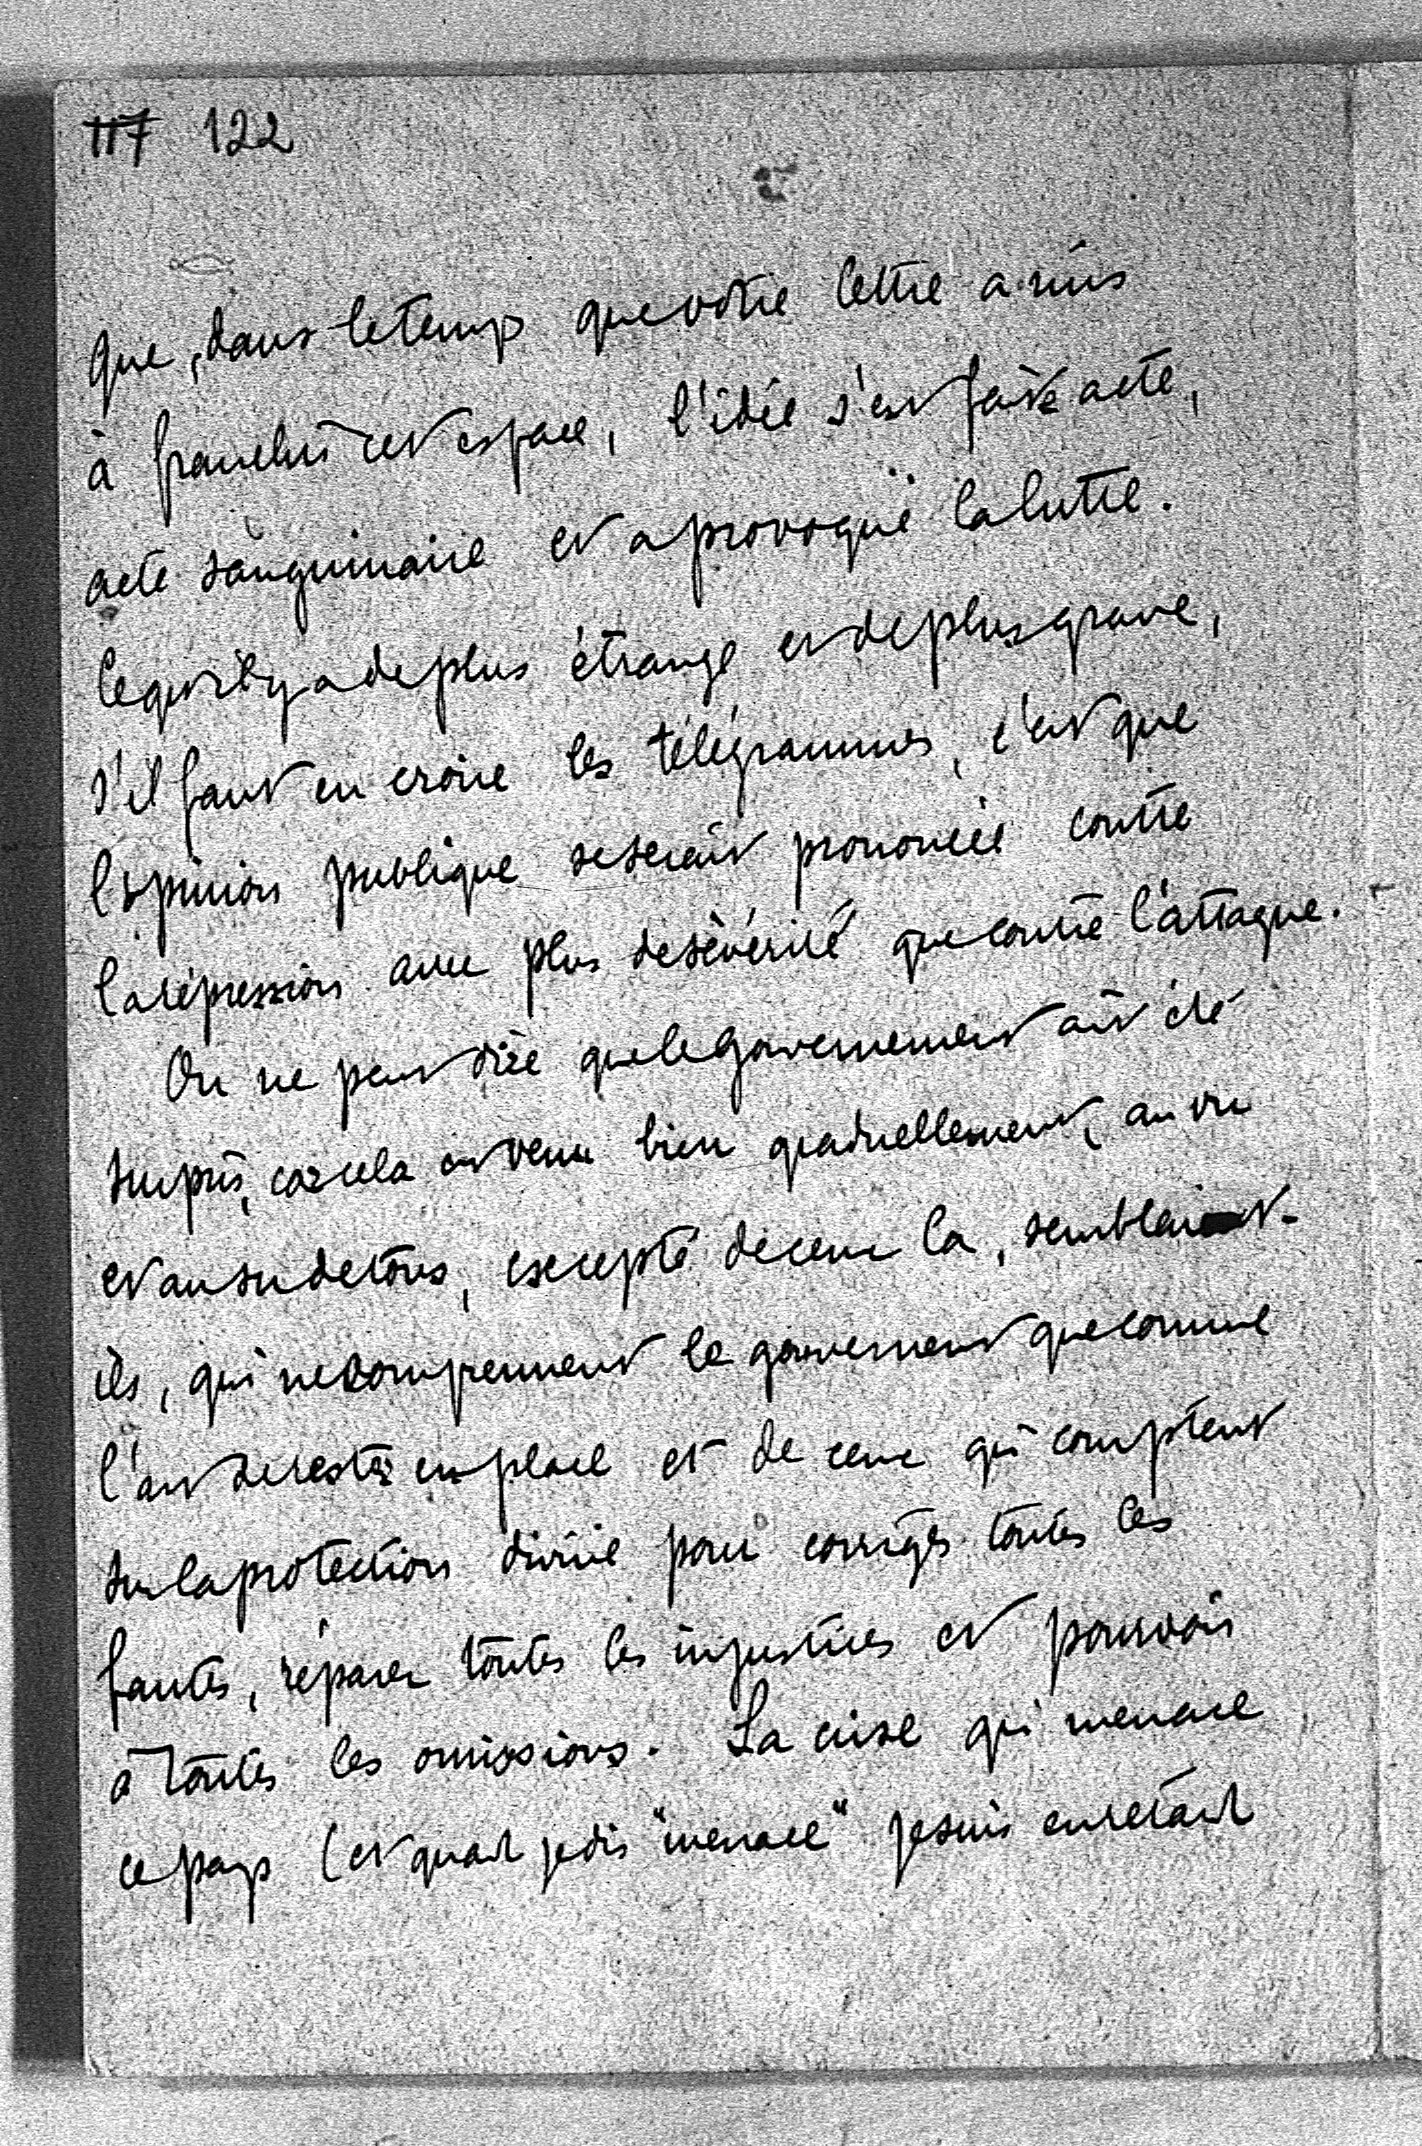 117 122
que, dans le temps que votre lettre a mis
à franchir cet espace, l'idée s'est faite acte,
acte sanguinaire et a provoqué la lutte.
Ce qu'il y a de plus étrange et de plus grave,
s'il faut en croire les télégrammes, c'est que
l'opinion publique se serait prononcée contre
la répression avec plus de sévérité que contre l'attaque.
On ne peut dire que le gouvernement ait été
surpris, car cela est venu bien graduellement, au vu
et au su de tous, excepté de ceux là, semblait-
ils, qui ne comprennent le gouvernement que comme
l'art de rester en place et de ceux qui comptent
sur la protection divine pour corriger toutes les
fautes, réparer toutes les injustices et pourvoir
à toutes les omissions. La crise qui menace
ce pays (et quand je dis "menace" je suis en retard